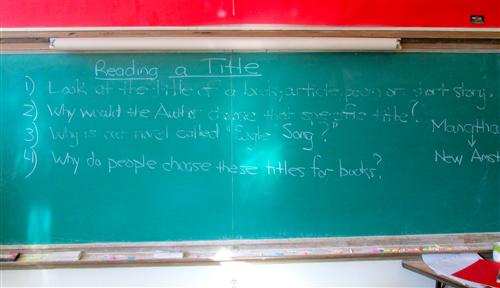 Reading a Title
1) Look at the title of a book, article, poem or short story.
2) Why would the Author choose that specific title?
3) Why is our novel called "Eagle Song?"
4) Why do people choose these titles for books?
New Amst